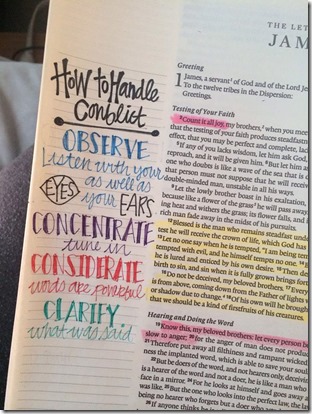 How to Handle
Conblict
OBSERVE
listen with your
EYES as well as
your EARS
CONCENTRATE
tune in
CONSIDERATE
words are powerful
CLARIFY
what was said
THE LET
JAM
Greeting
1 James, a servant of God and of the Lord Je
To the twelve tribes in the Dispersion:
Greetings.
Testing of Your Faith
2 Count it all joy, my brothers, when you mee
that the testing of your faith produces steadfastn
effect, that you may be perfect and complete, lack
5 If any of you lacks wisdom, let him ask God,
reproach, and it will be given him. 6 But let him as
one who doubts is like a wave of the sea that is d
that person must not suppose that he will receive
double-minded man, unstable in all his ways.
9 Let the lowly brother boast in his exaltation,
because like a flower of the grass he will pass away
ing heat and withers the grass; its flower falls, and
rich man fade away in the midst of his pursuits.
12 Blessed is the man who remains steadfast under
test he will receive the crown of life, which God has
13 Let no one say when he is tempted, "I am being tem
tempted with evil, and he himself tempts no one. 14
he is lured and enticed by his own desire. 15 Then de
birth to sin, and sin when it is fully grown brings fort
16 Do not be deceived, my beloved brothers. 17 Every
is from above, coming down from the Father of lights w
or shadow due to change. 18 Of his own will he brough
that we should be a kind of firstfruits of his creatures.
Hearing and Doing the Word
19 Know this, my beloved brothers: let every person b
slow to anger; 20 for the anger of man does not produc
21 Therefore put away all filthiness and rampant wicked
ness the implanted word, which is able to save your soul
22 But be doers of the word, and not hearers only, deceivin
is a hearer of the word and not a doer, he is like a man who
face in a mirror. 24 For he looks at himself and goes away a
was like. 25 But the one who looks into the perfect law, the l
being no hearer who forgets but a doer who acts, he will b
26 If anyone thinks he is